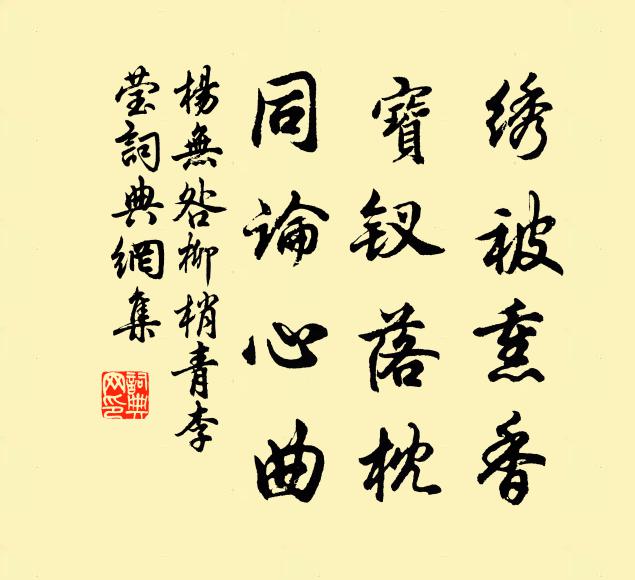 绣被熏香
寶钗落枕
同論心曲
楊無咎柳梢青李
莹詞典網集
詞典网印